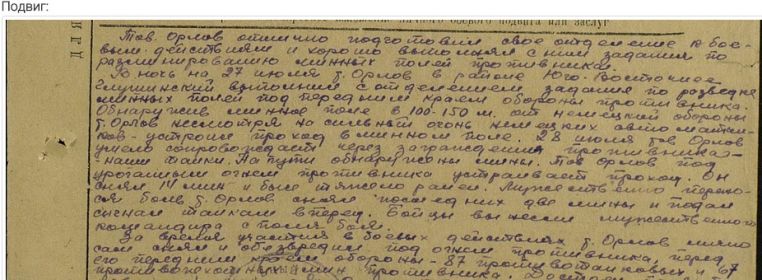 Подвиг:
личного боевого подвига или заслуг
Тов. Орлов отлично подготовил свое отделение к бое-
вым действиям и хорошо выполнял с ним задания по
разминированию минных полей противника.
В ночь на 27 июля т. Орлов в районе Юго-Восточнее
выполнил с отделением задания по разведке
минных полей под передним краем обороны противника.
Обнаружив минное поле в 100-150 м. от немецкой обороны
т. Орлов несмотря на сильный огонь немецких автоматчи-
ков - устроил проход в минном поле. 28 июля тов Орлов
умело сопровождает через заграждения противника -
наши танки. На пути обнаружены мины. Тов Орлов под
ураганным огнем противника устраивает проход. Он
снял 14 мин и был тяжело ранен. Мужественно перено-
ся боль т. Орлов снял последних две мины и подал
сигнал танкам вперед. Бойцы вынесли мужественного
командира с поля боя.
За время участия в боевых действиях т. Орлов лично
сам снял и обезвредил под огнем противника, перед
его передним краем обороны - 87 противотанковых и 67
противопехотных мин противника.